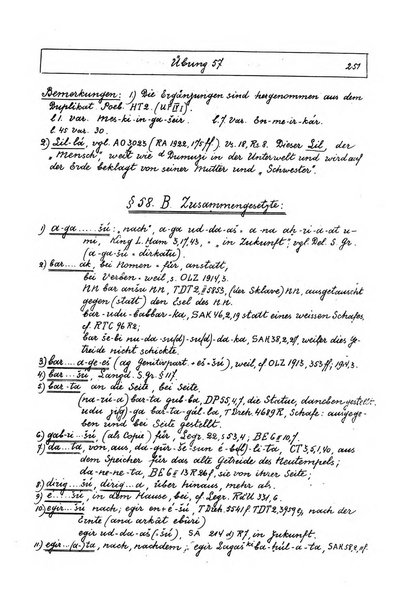 Übung 57 251
Bemerkungen: 1) Die Ergänzungen sind hergenommen aus dem
Duplikat Poeb. HT2.
l 1. var. Mes-ki-in-ga-šeir. l. 7. var. En-me-ir-kár.
l. 45 var. 30.
2) Lil-lá, vgl. AO 3023 (RA 1922, 175 ff) Vs. 18, Rs 8. Dieser Lil, der
„Mensch", weilt wie d Dumuzi in der Unterwelt und wird auf
der Erde beklagt von seiner Mutter und „Schwester".
§ 58. B. Zusammengesetzte:
1) a-ga.....šú: „nach", a-ga ud-da-aš = a-na aḫ-ri-a-at u-
mi, King L. Ham 3, 17, 43. = „in Zukunft", vgl. Del. S. Gr.
(a-ga-šú = dirkatu).
2) bar....ak, bei Nomen = für, anstatt,
bei Verben = weil, s. OLZ 1914, 3.
NN bar anšu NN, TDT2, I 5853, (der Sklave) NN, ausgetauscht
gegen (statt) den Esel des NN.
bar-udu-babbar-ka, SAK 46, 2, 19 statt einen weissen Schafes,
cf RTC 96 R2;
bar še-bi nu-da-su(d)-su(d)-da-ka, SAK 38, 2, 27, weil er dies Ge-
treide nicht schickte.
3) bar...a-ge-eš (ag genitivpart. + eš = šú), weil, cf OLZ 1913, 353 ff; 1914, 3.
4) bar....šú, Langd. S. Gr. § 117.
5) bar-ta an die Seite, bei Seite,
(na-rú-a) bar-ta gub-ba, DP 55, 4, 7, die Statue, danebengestellt.
udu ga bar-ta-gál-la, T. Dreh. 4689 R, Schafe: ausgege-
ben und bei Seite gestellt.
6) gab-ri...šú (als Copie) für, Legr. 22, I 53, 4; BE 6 II 10, 7.
7) da...ta, von, aus, da-gúr še-sun é-bil-li-ta, CT 3, 5, 1, 40, aus
dem Speicher für das alte Getreide des Neutempels;
da-ne-ne-ta, BE 6 II 13 R 26 f, sie von ihrer Seite;
8) dirig...šú, dirig...a, über hinaus, mehr als.
9) é...šú, in dem Hause, bei, cf Legr. RdU 331, 6.
10) egir...šú nach; egir en + é-šú, T. Dreh. 5541 f. TDT2, 3959 9, nach der
Ernte (and arkât ebûri)
egir ud-da-aš (=šú), SA 214 d) R7, in Zukunft.
11) egir...(a)-ta, nach, nachdem; egir Lagaš ki ba-ḫúl-a-ta, SAK 58, 4, 2 f.